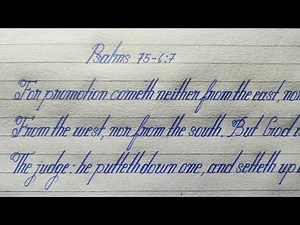 Psalms 75-6:7
For promotion cometh neither from the east, nor
From the west, nor from the south. But God i
The judge: he putteth down one, and setteth up a